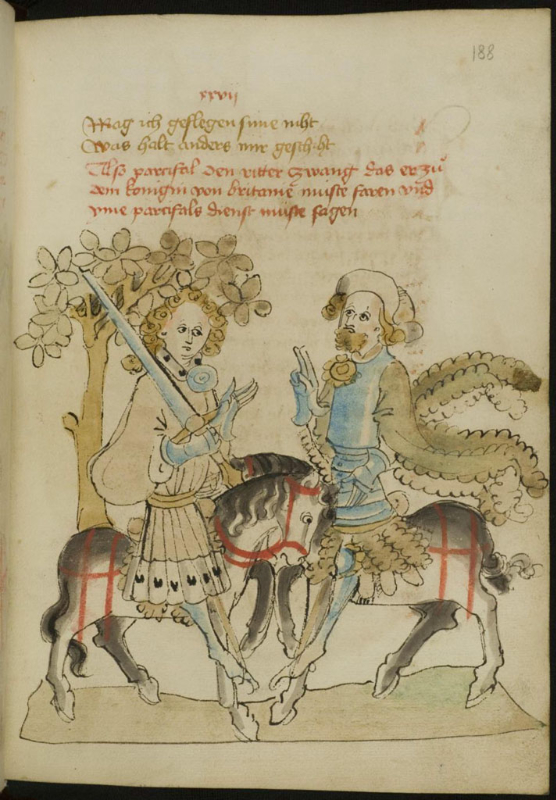 188
xxvii
Mag ich geslegen sinne niht
Was halt anders mir geschiht
Also parcifal den ritter zwang das er zů
dem konigin von britanie muͤste faren vnd
yme parcifals dienst muͤste sagen